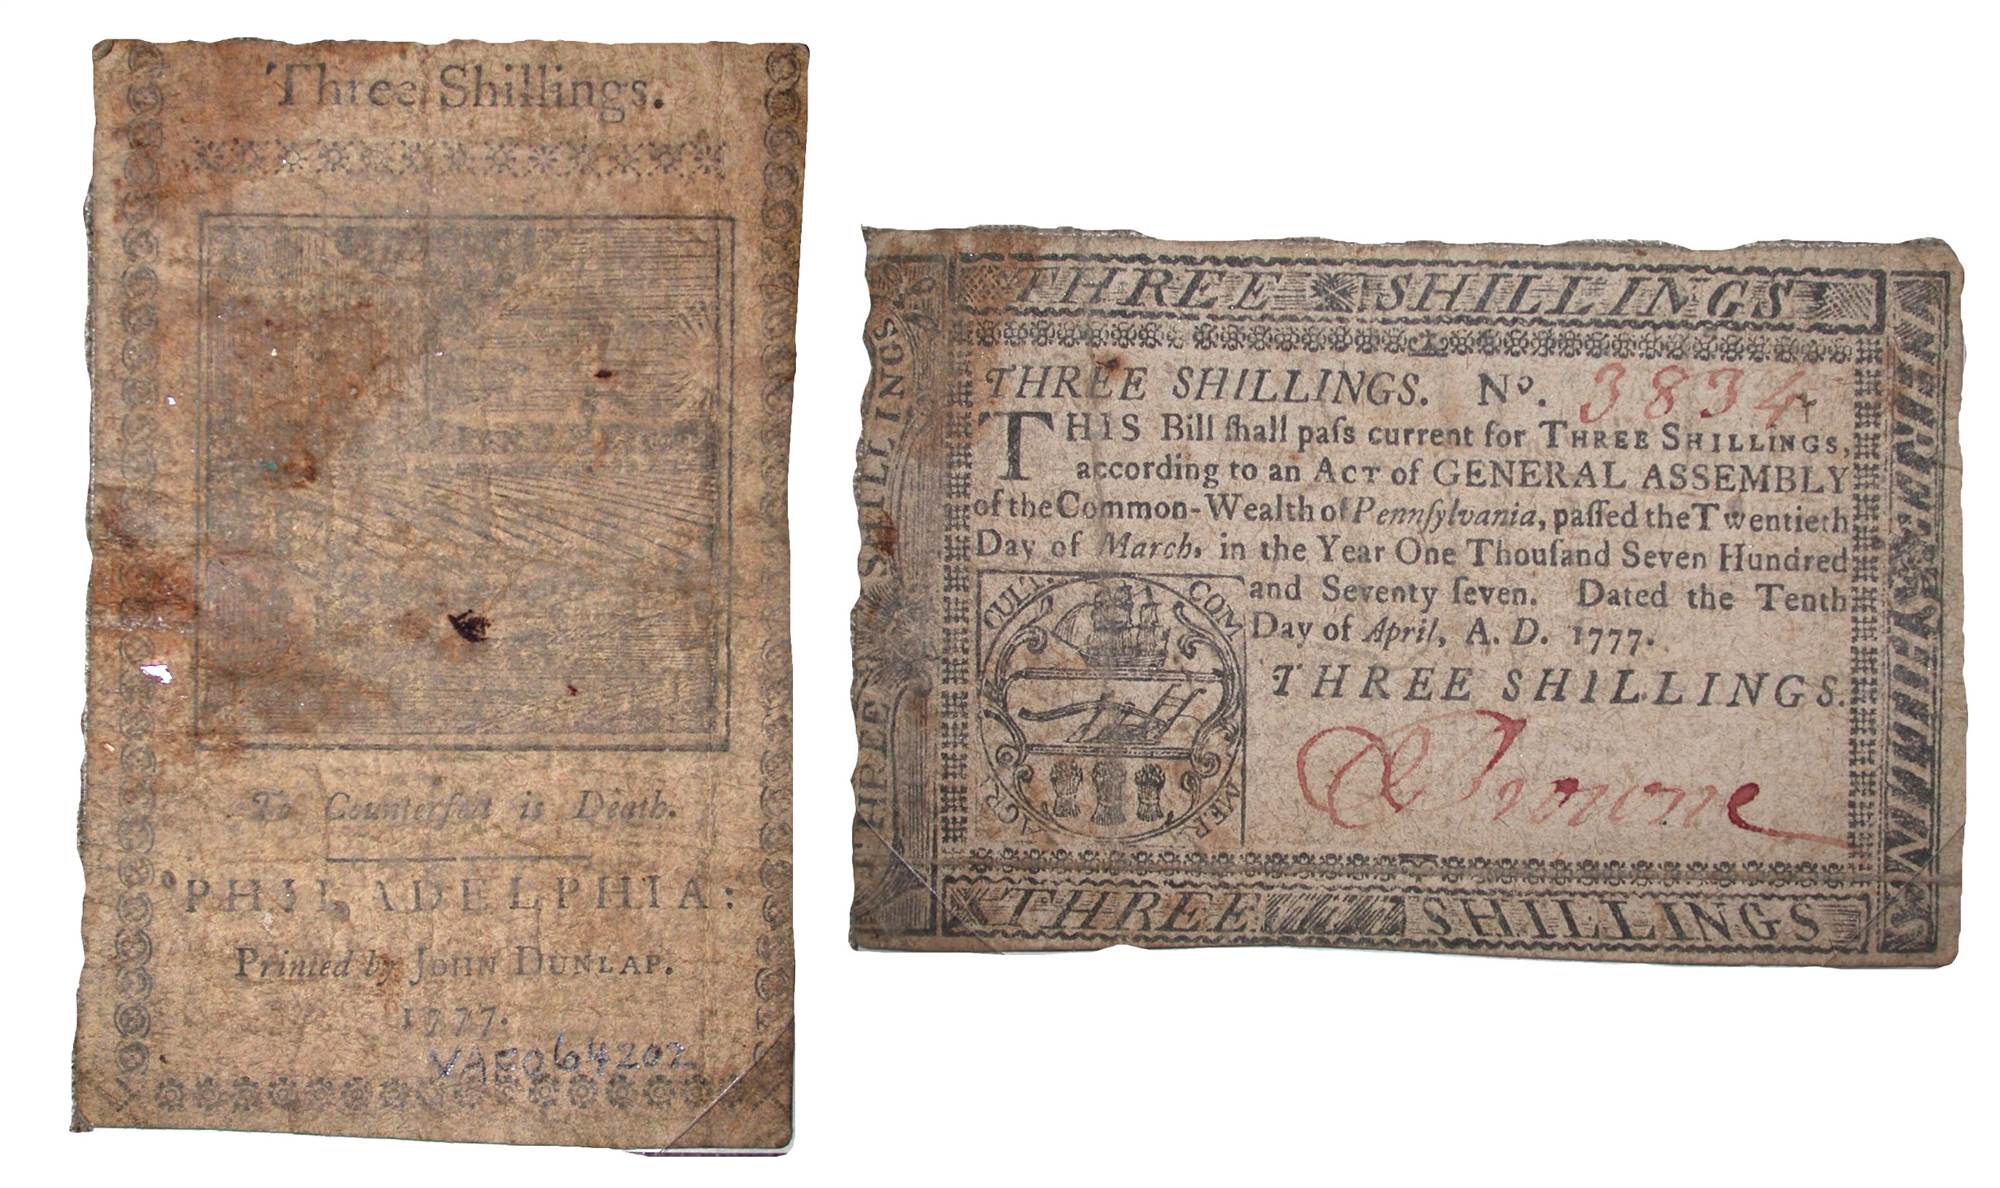 Three Shillings.
To Counterfeit is Death.
PHILADELPHIA:
Printed by JOHN DUNLAP.
1777.
VAE064202
THREE SHILLINGS
THREE SHILLINGS
THREE SHILLINGS
THREE SHILLINGS. No. 3834
THIS Bill ſhall paſs current for THREE SHILLINGS,
according to an ACT of GENERAL ASSEMBLY
of the Common-Wealth of Pennſylvania, paſſed the Twentieth
Day of March, in the Year One Thouſand Seven Hundred
and Seventy ſeven. Dated the Tenth
Day of April, A. D. 1777.
THREE SHILLINGS.
AGRI CULT. COM MERC
THREE SHILLINGS